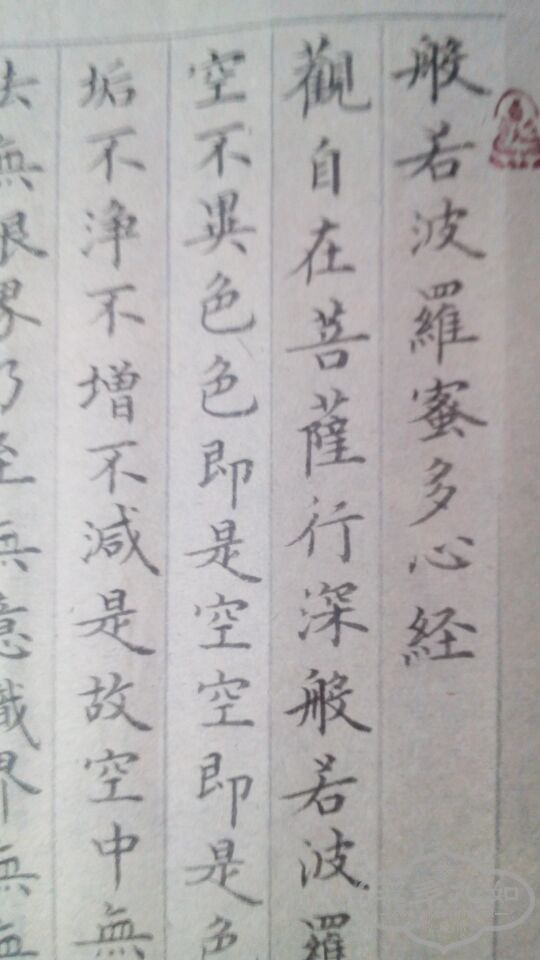 般若波羅蜜多心経
觀自在菩薩行深般若波羅
空不異色色即是空空即是色
垢不浄不增不減是故空中無
法無眼界乃至無意識界無無